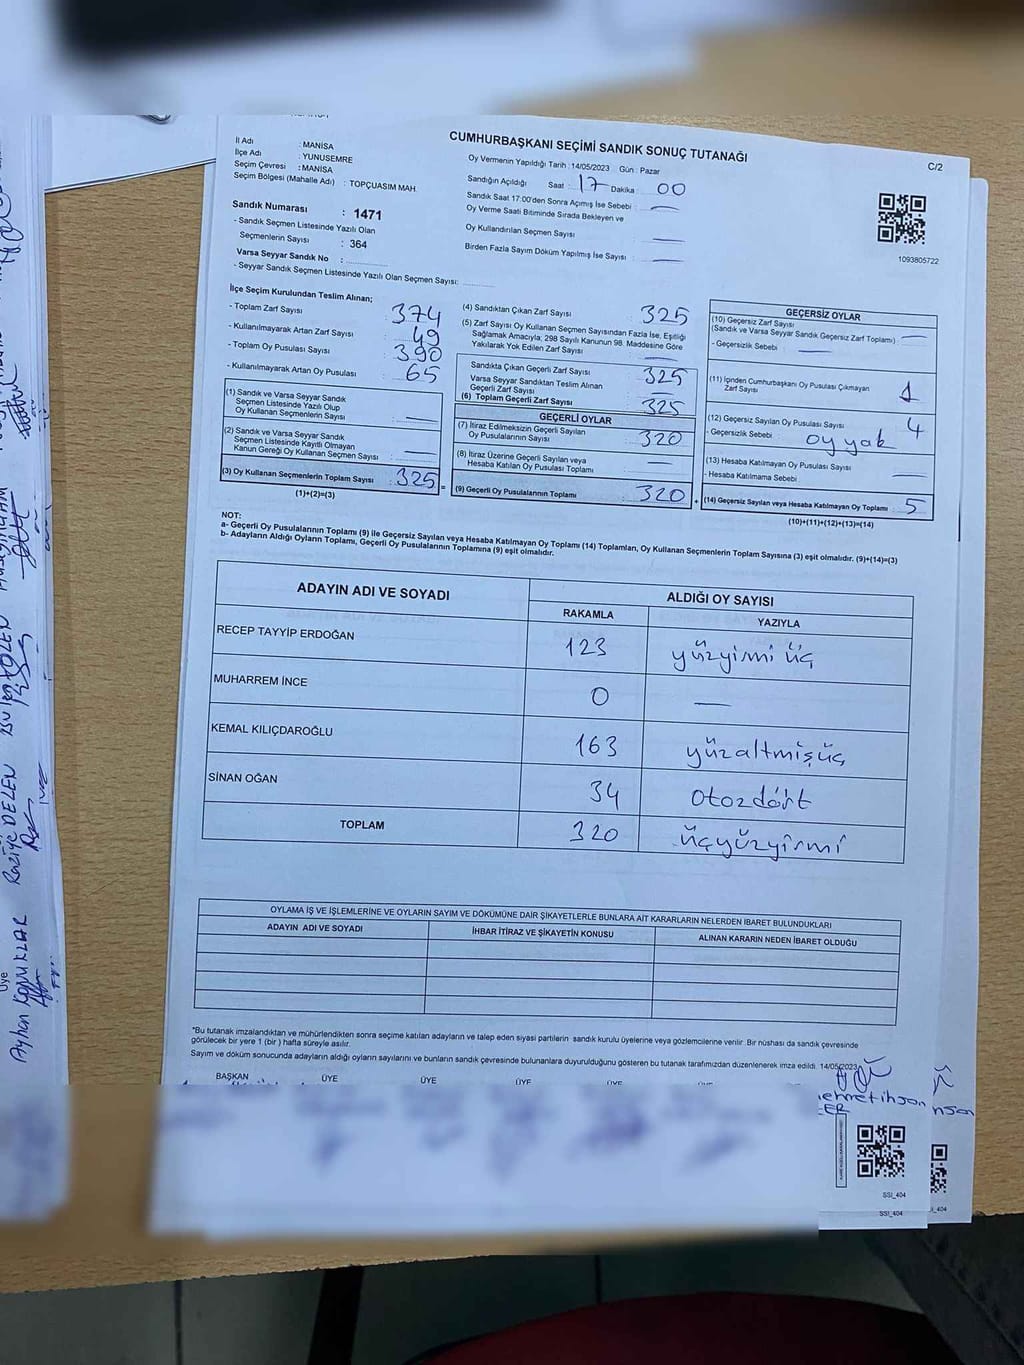 CUMHURBAŞKANI SEÇİMİ SANDIK SONUÇ TUTANAĞI
C/2
İl Adı : MANİSA
İlçe Adı : YUNUSEMRE
Seçim Çevresi : MANİSA
Seçim Bölgesi (Mahalle Adı) : TOPÇUASIM MAH.
Oy Vermenin Yapıldığı Tarih : 14/05/2023 Gün : Pazar
Sandığın Açıldığı Saat : 17 Dakika : 00
Sandık Saat 17:00'den Sonra Açımış İse Sebebi : —
Oy Verme Saati Bitiminde Sırada Bekleyen ve
Oy Kullandırılan Seçmen Sayısı —
Birden Fazla Sayım Döküm Yapılmış İse Sayısı : —
1093805722
Sandık Numarası : 1471
- Sandık Seçmen Listesinde Yazılı Olan
Seçmenlerin Sayısı : 364
Varsa Seyyar Sandık No :
- Seyyar Sandık Seçmen Listesinde Yazılı Olan Seçmen Sayısı:
İlçe Seçim Kurulundan Teslim Alınan;
- Toplam Zarf Sayısı : 374
- Kullanılmayarak Artan Zarf Sayısı : 49
- Toplam Oy Pusulası Sayısı : 390
- Kullanılmayarak Artan Oy Pusulası : 65
(1) Sandık ve Varsa Seyyar Sandık
Seçmen Listesinde Yazılı Olup
Oy Kullanan Seçmenlerin Sayısı : —
(2) Sandık ve Varsa Seyyar Sandık
Seçmen Listesinde Kayıtlı Olmayan
Kanun Gereği Oy Kullanan Seçmen Sayısı : —
(3) Oy Kullanan Seçmenlerin Toplam Sayısı : 325 =
(1)+(2)=(3)
(4) Sandıktan Çıkan Zarf Sayısı : 325
(5) Zarf Sayısı Oy Kullanan Seçmen Sayısından Fazla İse, Eşitliği
Sağlamak Amacıyla, 298 Sayılı Kanunun 98. Maddesine Göre
Yakılarak Yok Edilen Zarf Sayısı : —
Sandıkta Çıkan Geçerli Zarf Sayısı : 325
Varsa Seyyar Sandıktan Teslim Alınan
Geçerli Zarf Sayısı
(6) Toplam Geçerli Zarf Sayısı : 325
GEÇERLİ OYLAR
(7) İtiraz Edilmeksizin Geçerli Sayılan
Oy Pusulalarının Sayısı : 320
(8) İtiraz Üzerine Geçerli Sayılan veya
Hesaba Katılan Oy Pusulası Toplamı : —
(9) Geçerli Oy Pusulalarının Toplamı : 320 +
GEÇERSİZ OYLAR
(10) Geçersiz Zarf Sayısı
(Sandık ve Varsa Seyyar Sandık Geçersiz Zarf Toplamı) : —
- Geçersizlik Sebebi : —
(11) İçinden Cumhurbaşkanı Oy Pusulası Çıkmayan
Zarf Sayısı : 1
(12) Geçersiz Sayılan Oy Pusulası Sayısı : 4
- Geçersizlik Sebebi : oy yok
(13) Hesaba Katılmayan Oy Pusulası Sayısı : —
- Hesaba Katılmama Sebebi :
(14) Geçersiz Sayılan veya Hesaba Katılmayan Oy Toplamı : 5
(10)+(11)+(12)+(13)=(14)
NOT:
a- Geçerli Oy Pusulalarının Toplamı (9) ile Geçersiz Sayılan veya Hesaba Katılmayan Oy Toplamı (14) Toplamları, Oy Kullanan Seçmenlerin Toplam Sayısına (3) eşit olmalıdır. (9)+(14)=(3)
b- Adayların Aldığı Oyların Toplamı, Geçerli Oy Pusulalarının Toplamına (9) eşit olmalıdır.
ADAYIN ADI VE SOYADI ALDIĞI OY SAYISI
RAKAMLA YAZIYLA
RECEP TAYYİP ERDOĞAN 123 yüzyirmi üç
MUHARREM İNCE 0 —
KEMAL KILIÇDAROĞLU 163 yüzaltmışüç
SİNAN OĞAN 34 otozdört
TOPLAM 320 üçyüzyirmi
OYLAMA İŞ VE İŞLEMLERİNE VE OYLARIN SAYIM VE DÖKÜMÜNE DAİR ŞİKAYETLERLE BUNLARA AİT KARARLARIN NELERDEN İBARET BULUNDUKLARI
ADAYIN ADI VE SOYADI İHBAR İTİRAZ VE ŞİKAYETİN KONUSU ALINAN KARARIN NEDEN İBARET OLDUĞU
"Bu tutanak imzalandıktan ve mühürlendikten sonra seçime katılan adayların ve talep eden siyasi partilerin sandık kurulu üyelerine veya gözlemcilerine verilir .Bir nüshası da sandık çevresinde
görülecek bir yere 1 (bir ) hafta süreyle asılır.
Sayım ve döküm sonucunda adayların aldığı oyların sayılarını ve bunların sandık çevresinde bulunanlara duyurulduğunu gösteren bu tutanak tarafımızdan düzenlenerek imza edildi. 14/05/2023
BAŞKAN ÜYE ÜYE ÜYE ÜYE ÜYE
SSI_404
SSI_404
Üye
Ayhan
Raziye DELEN